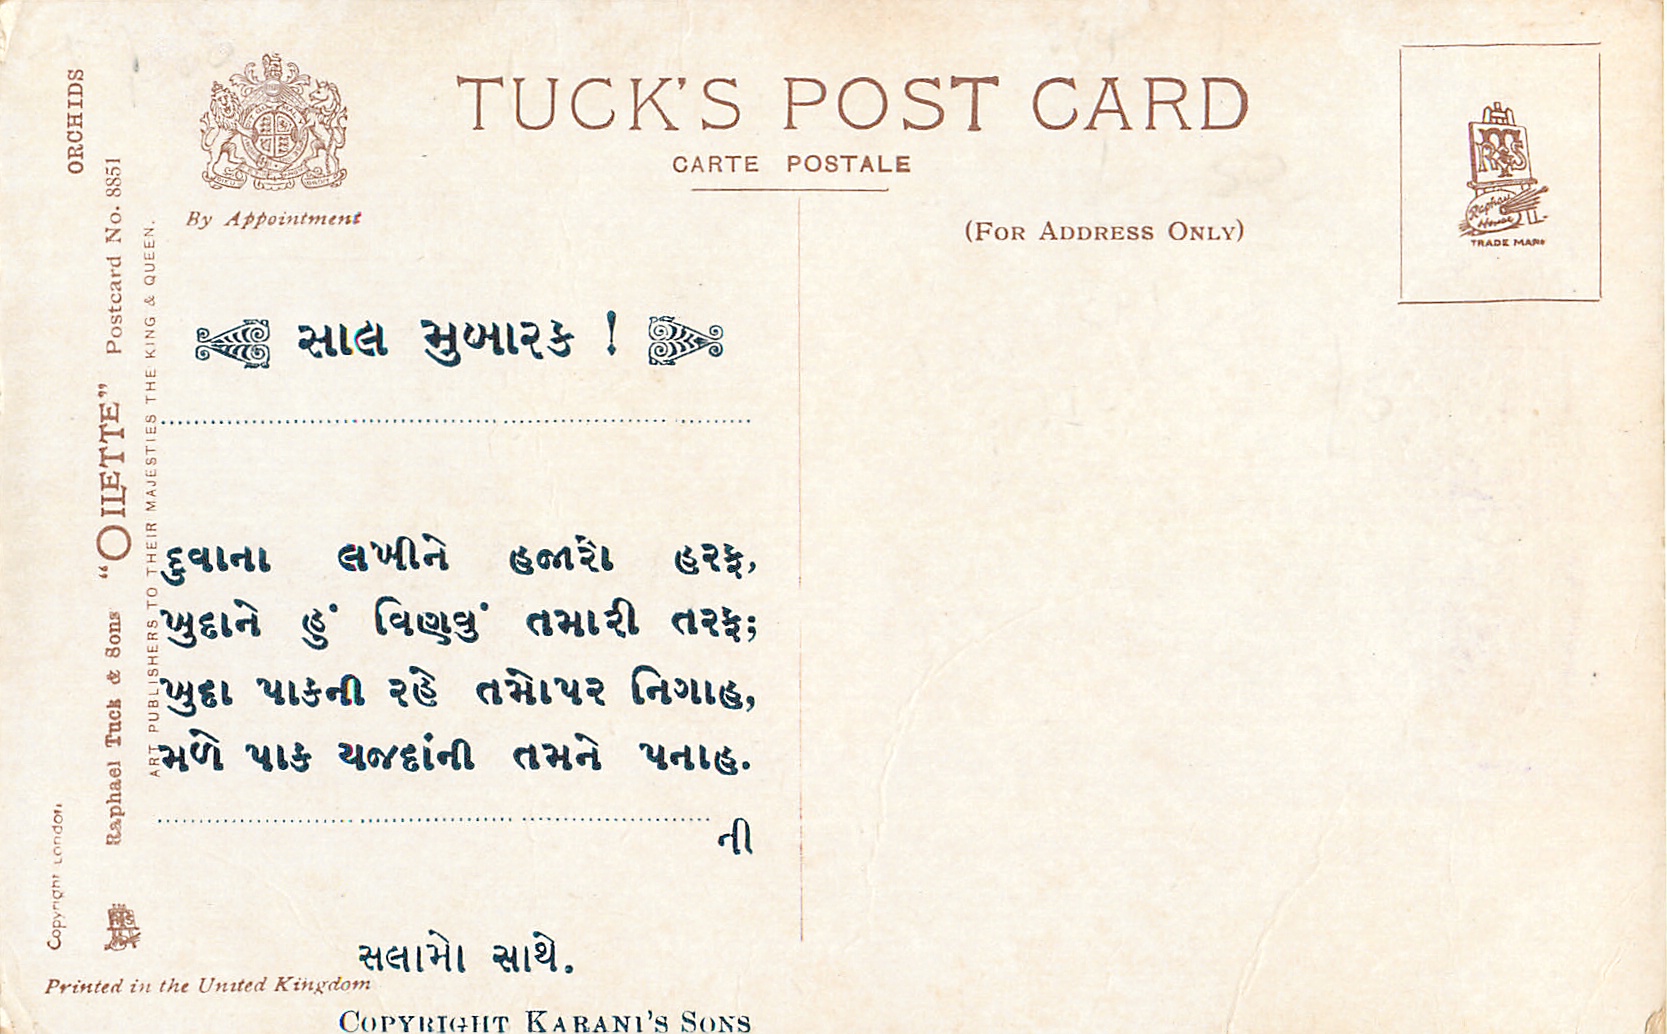 ORCHIDS
"OILETTE" Postcard No. 8851
Raphael Tuck & Sons
ART PUBLISHERS TO THEIR MAJESTIES THE KING & QUEEN.
Copyright London
By Appointment
TUCK'S POST CARD
CARTE POSTALE
(FOR ADDRESS ONLY)
RTS
Raphael House
TRADE MARK
સાલ મુબારક !
દુવાના લખીને હજારો હરફ,
ખુદાને હું વિણવું તમારી તરફ;
ખુદા પાકની રહે તમોપર નિગાહ,
મળે પાક યજદાંની તમને પનાહ.
ની
સલામો સાથે.
Printed in the United Kingdom
COPYRIGHT KARANI'S SONS